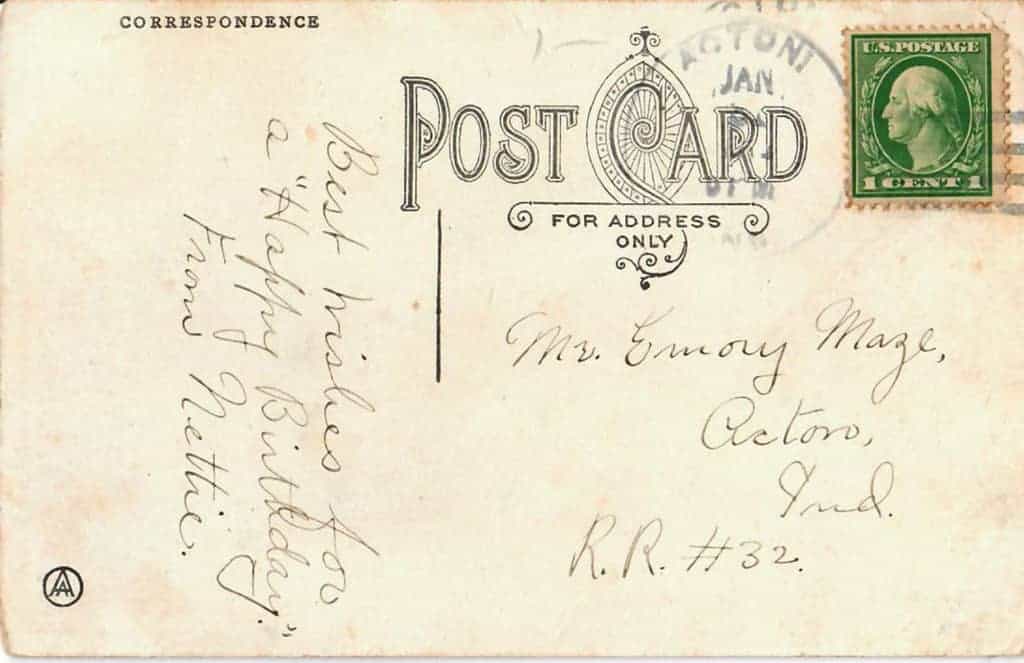 CORRESPONDENCE
POST CARD
FOR ADDRESS
ONLY
ACTON
JAN
PM
U.S. POSTAGE
1 CENT 1
Best wishes for
a "Happy Birthday."
From Nettie.
Mr. Emory Maze,
Acton,
Ind.
R.R. #32.